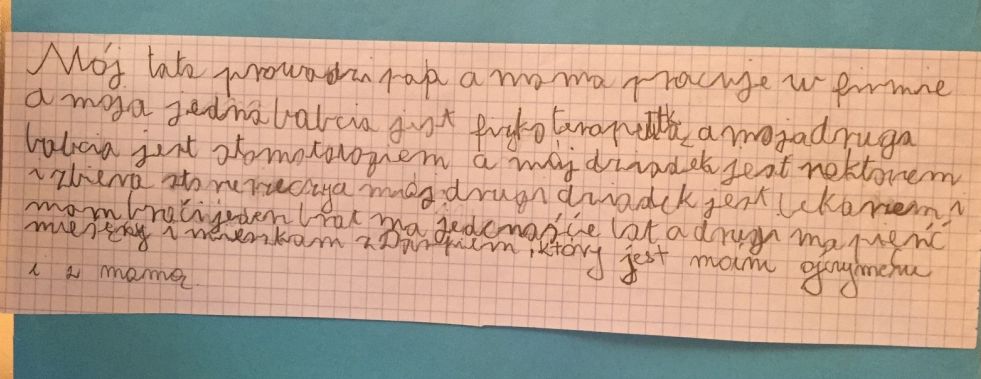 Mój tata prowadzi pap a mama pracuje w firmie
a moja jedna babcia jest fizkoterapełtką, a moja druga
babcia jest stomatologiem a mój dziadek jest rektorem
i zbiera a mój drugi dziadek jest lekarzem i
mam braci jeden brat ma jedenaście lat a drugi ma pienć
miesięcy i mieszkam z który jest moim ojczymem
i z mamą.